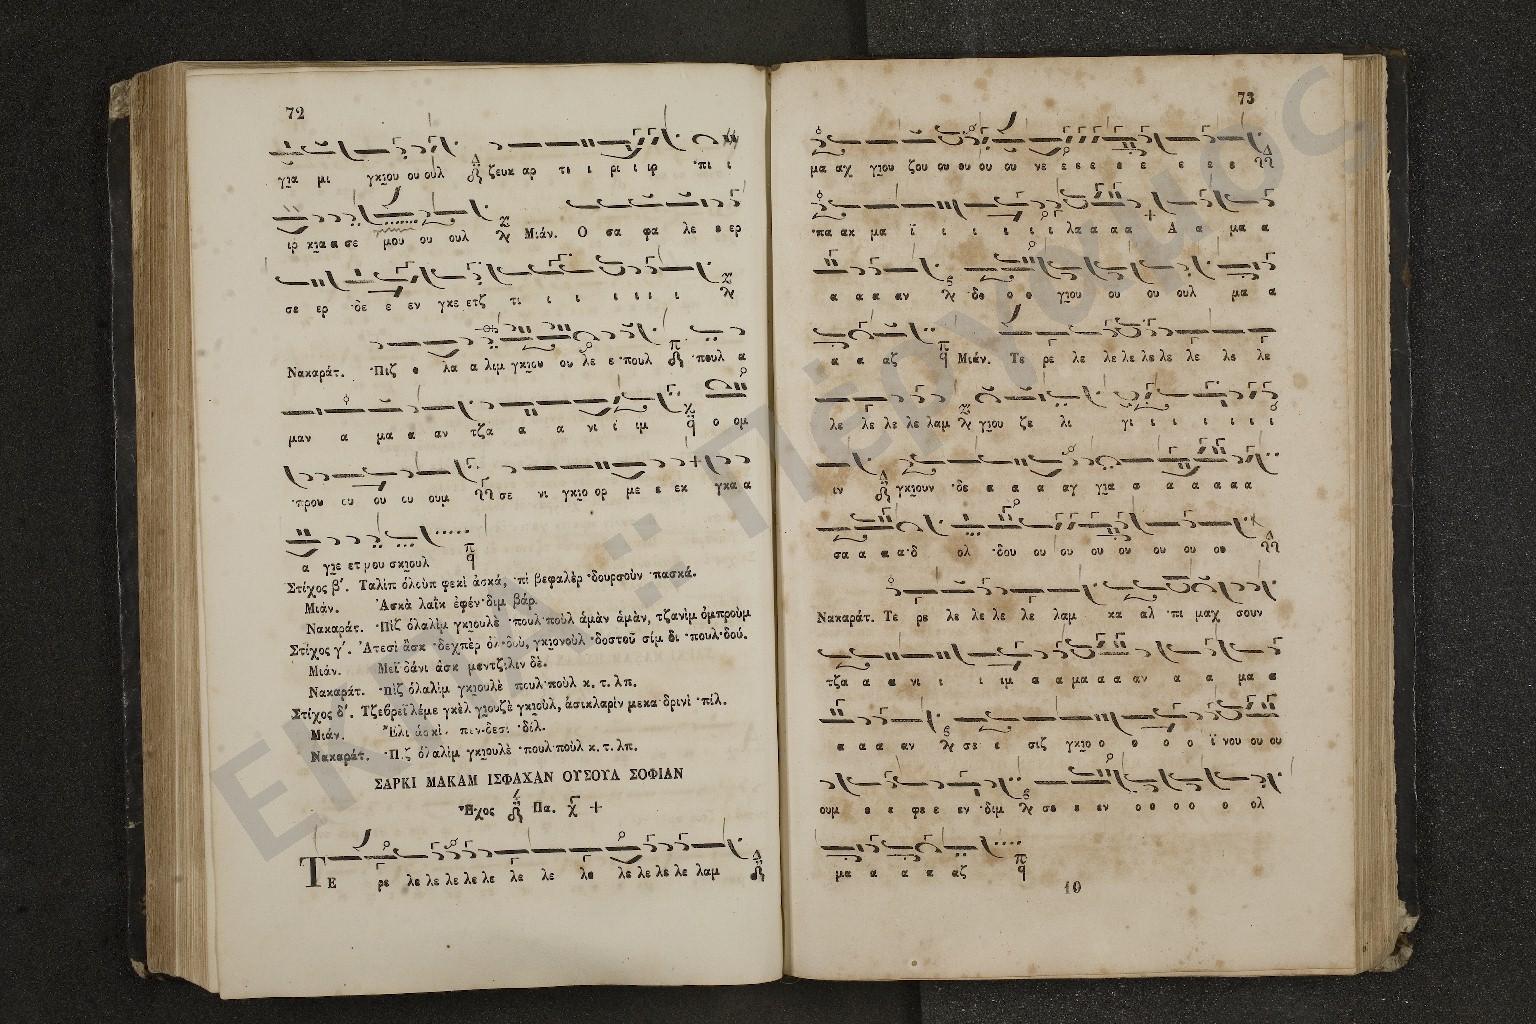 72
για μι γκιου ου ουλ ζευκ αρ τι ι ρι ι ιρ ·πι ι
ιρ κια α σε μου ου ουλ Μιάν. Ο σα φα λε ε ερ
σε ερ ·δε ε εν γκε ετζ τι ι ι ι ι ι ι
Νακαράτ. ·Πιζ ο λα α λιμ γκιου ου λε ε ·πουλ ·πουλ α
μαν α μα α αν τζα α α νι ι ιμ ο ομ
·πρου ου ου ου ουμ σε νι γκιο ορ με ε εκ γκα α
α γιε ετ μου σκιουλ
Στίχος β΄. Ταλίπ όλουπ φεκί ἀσκά, ·πὶ βεφαλὲρ ·δουρσοὺν ·πασκά.
Μιάν. Ἀσκὰ λαῒκ ἐφέν·διμ βάρ.
Νακαράτ. ·Πὶζ ὀλαλὶμ γκιουλὲ ·πουλ·ποὺλ ἁμὰν ἁμὰν, τζανὶμ ὀμπροὺμ
Στίχος γ΄. Ἀτεσὶ ἂσκ ·δεχπὲρ ὀλ·δοὺ, γκιονοὺλ ·δοστοῦ σίμ δι ·πουλ·δού.
Μιάν. Μεῒ ·δάνι ἀσκ μεντζιλιν δὲ.
Νακαράτ. ·Πὶζ ὀλαλὶμ γκιουλὲ πουλ·ποὺλ κ. τ. λπ.
Στίχος δ΄. Τζεβρεῒ λέμε γκὲλ γιουζὲ γκιοὺλ, ἀσικλαρὶν μεκα·δρινὶ ·πίλ.
Μιάν. Ἐλὶ ἀσκὶ πεν·δεσὶ ·δίλ.
Νακαράτ. ·Πὶζ ὀλαλὶμ γκιουλὲ ·πουλ·ποὺλ κ. τ. λπ.
ΣΑΡΚΙ ΜΑΚΑΜ ΙΣΦΑΧΑΝ ΟΥΣΟΥΛ ΣΟΦΙΑΝ
Ἦχος Πα.
ΤΕ ρε λε λε λε λε λε λε λε λε λε λε λε λε λαμ
73
μα αχ γιου ζου ου ου ου ου νε ε ε ε ε ε ε ε ε ε
·πα ακ μα ϊ ι ι ι ι ι λα α α α Α α μα α
α α α αν ·δο ο ο γιου ου ου ουλ μα α
α α αζ Μιάν. Τε ρε λε λε λε λε λε λε λε λε
λε λε λε λε λαμ γιου ζε λι γι ι ι ι ι ι
ιν γκιουν ·δε α α α αγ για α α α α α α
σα α α α·δ ολ ·δου ου ου ου ου ου ου ου ου
Νακαράτ. Τε ρε λε λε λε λε λαμ κα αλ ·πι μαχ σουν
τζα α α νι ι ι ιμ α α μα α α αν α α μα α
α α α αν σε ε σιζ γκιο ο ο ο ο ο ϊ νου ου ου
ουμ ε ε φε ε εν ·διμ σε ε ε εν ο ο ο ο ο ο ολ
μα α α α αζ
10
ΕΝΙΑ :: Πέργαμος